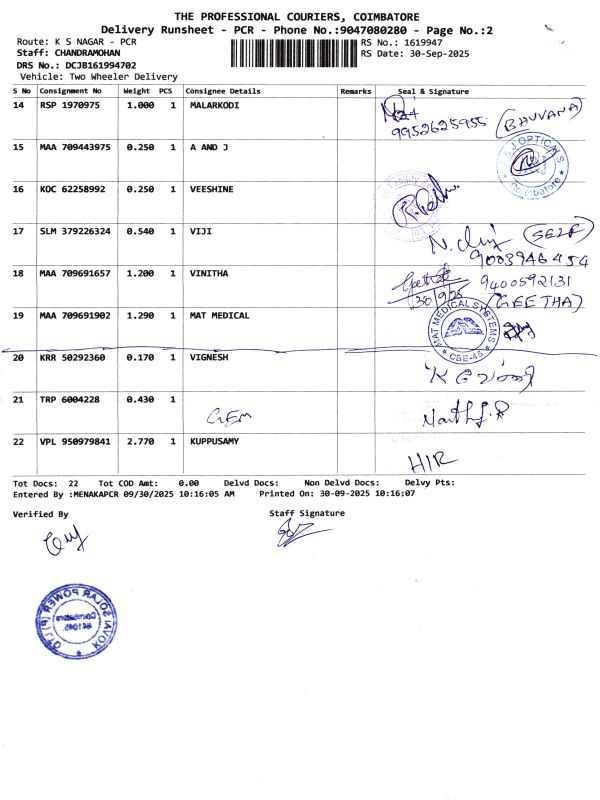 THE PROFESSIONAL COURIERS, COIMBATORE
Delivery Runsheet - PCR - Phone No.:9047080280 - Page No.:2
Route: K S NAGAR - PCR RS No.: 1619947
Staff: CHANDRAMOHAN RS Date: 30-Sep-2025
DRS No.: DCJB161994702
Vehicle: Two Wheeler Delivery
S No Consignment No Weight PCS Consignee Details Remarks Seal & Signature
14 RSP 1970975 1.000 1 MALARKODI
9952625955 (BAVVANA)
15 MAA 709443975 0.250 1 A AND J
A&J OPTICALS Coimbatore
16 KOC 62258992 0.250 1 VEESHINE
17 SLM 379226324 0.540 1 VIJI (SELF)
9003946454
18 MAA 709691657 1.200 1 VINITHA 9400592131
30/9/25 (GEETHA)
19 MAA 709691902 1.290 1 MAT MEDICAL
MAT MEDICAL SYSTEMS CBE-45
20 KRR 50292360 0.170 1 VIGNESH
21 TRP 6004228 0.430 1
GEM
22 VPL 950979841 2.770 1 KUPPUSAMY
HIR
Tot Docs: 22 Tot COD Amt: 0.00 Delvd Docs: Non Delvd Docs: Delvy Pts:
Entered By :MENAKAPCR 09/30/2025 10:16:05 AM Printed On: 30-09-2025 10:16;07
Verified By Staff Signature
KOVAI SOLAR POWER (P) LTD
Coimbatore
641045